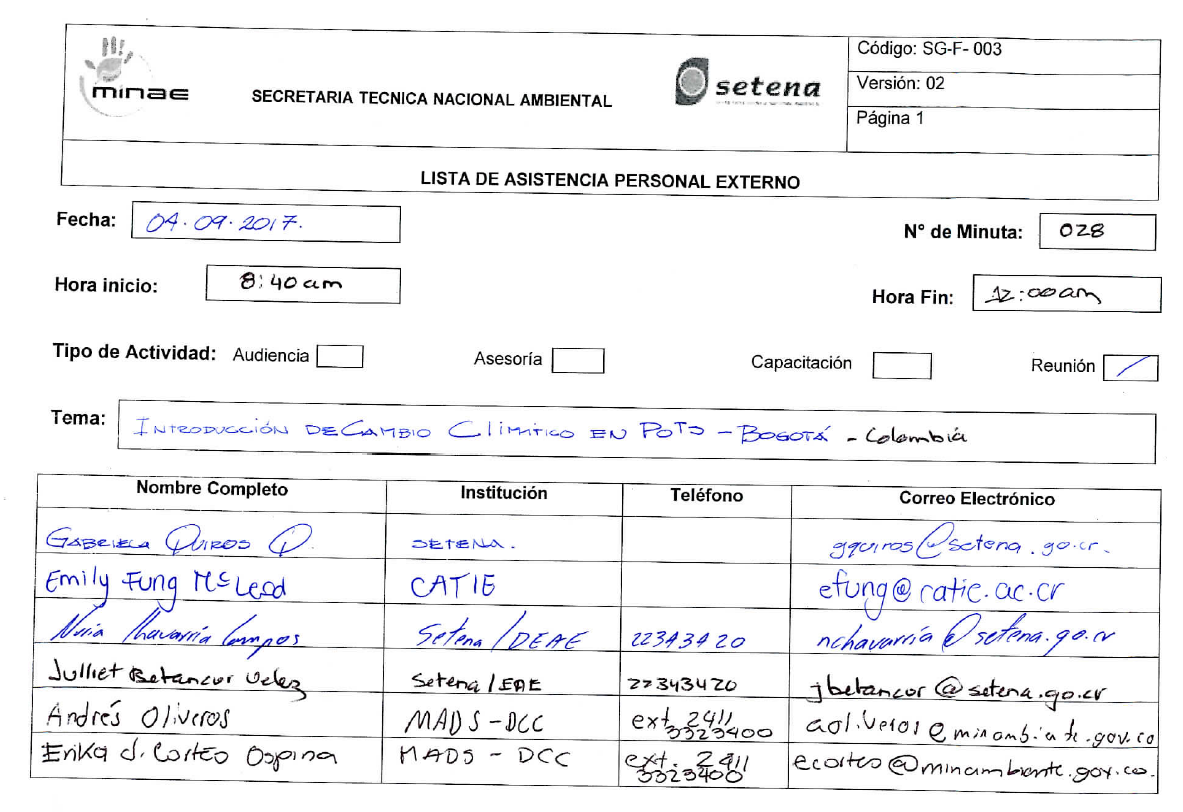 Código: SG-F- 003
minae
SECRETARIA TECNICA NACIONAL AMBIENTAL
setena
Versión: 02
Página 1
LISTA DE ASISTENCIA PERSONAL EXTERNO
Fecha: 04.09.2017.
N° de Minuta: 028
Hora inicio: 8:40am
Hora Fin: 12:00am
Tipo de Actividad: Audiencia Asesoría Capacitación Reunión
Tema: INTRODUCCIÓN DE CAMBIO CLIMÁTICO EN POTS - BOGOTÁ - Colombia
Nombre Completo Institución Teléfono Correo Electrónico
GABRIELA QUIROS Q. SETENA. gquiros@setena.go.cr.
Emily Fung McLeod CATIE efung@catie.ac.cr
Nuria Chavarría Campos Setena/DEAE 22343420 nchavarría@setena.go.cr
Julliet Betancur Velez Setena/EAE 22343420 jbetancor@setena.go.cr
Andrés Oliveros MADS-DCC ext 2411 3323400 aoliveros@minambiente.gov.co
Erika J. Cortes Ospina MADS - DCC ext. 2411 3323400 ecortes@minambiente.gov.co.